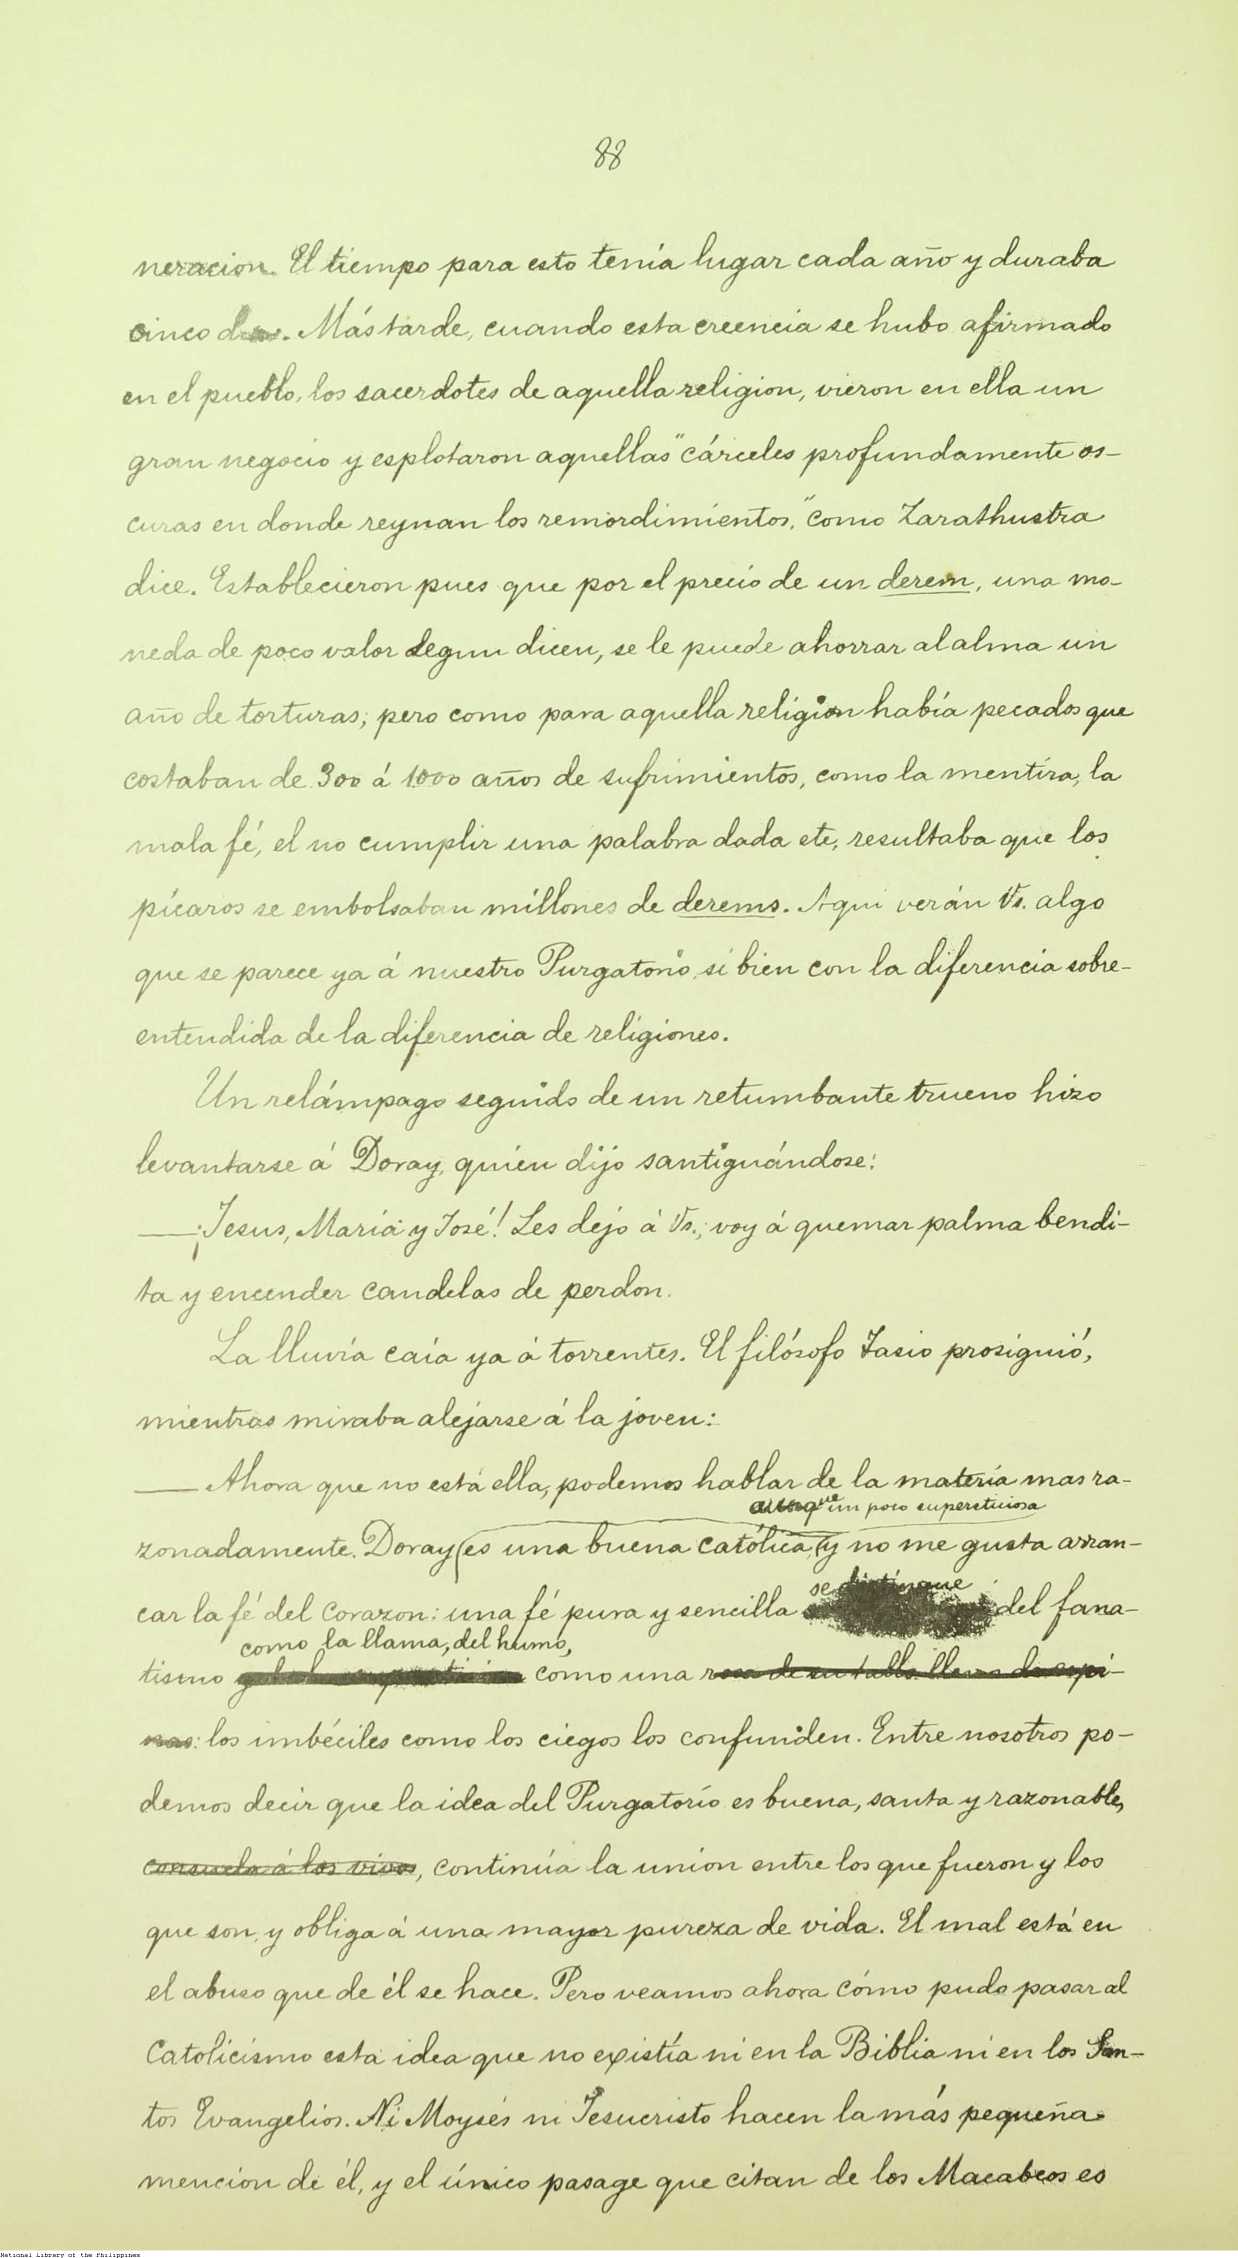 88
neracion. El tiempo para esto tenía lugar cada año y duraba
cinco dias. Más tarde, cuando esta creencia se hubo afirmado
en el pueblo, los sacerdotes de aquella religion, vieron en ella un
gran negocio y esplotaron aquellas "cárceles profundamente os-
curas en donde reynan los remordimientos," como Zarathustra
dice. Establecieron pues que por el precio de un derem, una mo-
neda de poco valor segun dicen, se le puede ahorrar al alma un
año de torturas; pero como para aquella religion había pecados que
costaban de 300 á 1000 años de sufrimientos, como la mentira, la
mala fé, el no cumplir una palabra dada etc, resultaba que los
pícaros se embolsaban millones de derems. Aqui verán Vs. algo
que se parece ya á nuestro Purgatorio, si bien con la diferencia sobre-
entendida de la diferencia de religiones.
Un relámpago seguido de un retumbante trueno hizo
levantarse á Doray, quien dijo santiguándose:
—¡Jesus, María y José! Les dejo á Vs.; voy á quemar palma bendi-
ta y encender candelas de perdon.
La lluvia caía ya á torrentes. El filósofo Tasio prosiguió,
mientras miraba alejarse á la joven:
— Ahora que no está ella, podemos hablar de la materia mas ra-
aunque un poco supersticiosa
zonadamente. Doray (es una buena católica, (y no me gusta arran-
se distingue
car la fé del corazon: una fé pura y sencilla del fana-
como la llama, del humo,
tismo como una rosa de su tallo lleno de espi-
nas: los imbéciles como los ciegos los confunden. Entre nosotros po-
demos decir que la idea del Purgatorio es buena, santa y razonable,
consuela á los vivos, continúa la union entre los que fueron y los
que son, y obliga á una mayor pureza de vida. El mal está en
el abuso que de él se hace. Pero veamos ahora cómo pudo pasar al
Catolicismo esta idea que no existía ni en la Biblia ni en los San-
tos Evangelios. Ni Moysés ni Jesucristo hacen la más pequeña
mencion de él, y el único pasage que citan de los Macabeos es
National Library of the Philippines